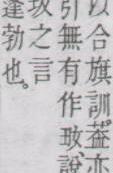 以合旗訓葢亦
引無有作說
之言
逢勃也。